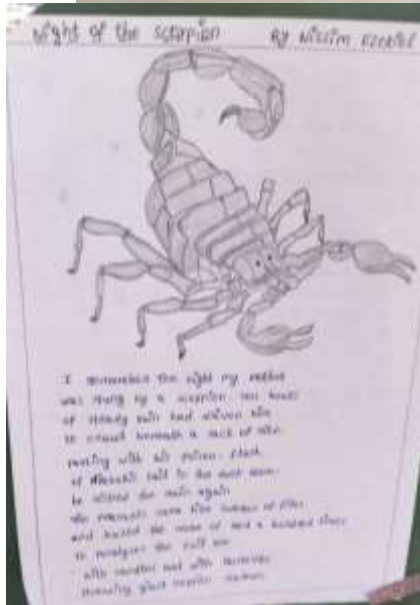 Night of the scorpion By Nissim Ezekiel
I remember the night my mother
was stung by a scorpion. Ten hours
of steady rain had driven him
to crawl beneath a sack of rice
parting with his poison - flash
of diabolic tail in the dark room
he risked the rain again
the peasants came like swarms of flies
and buzzed the name of God a hundred times
to paralyse the evil one
with candles and with lanterns
throwing giant scorpion shadows